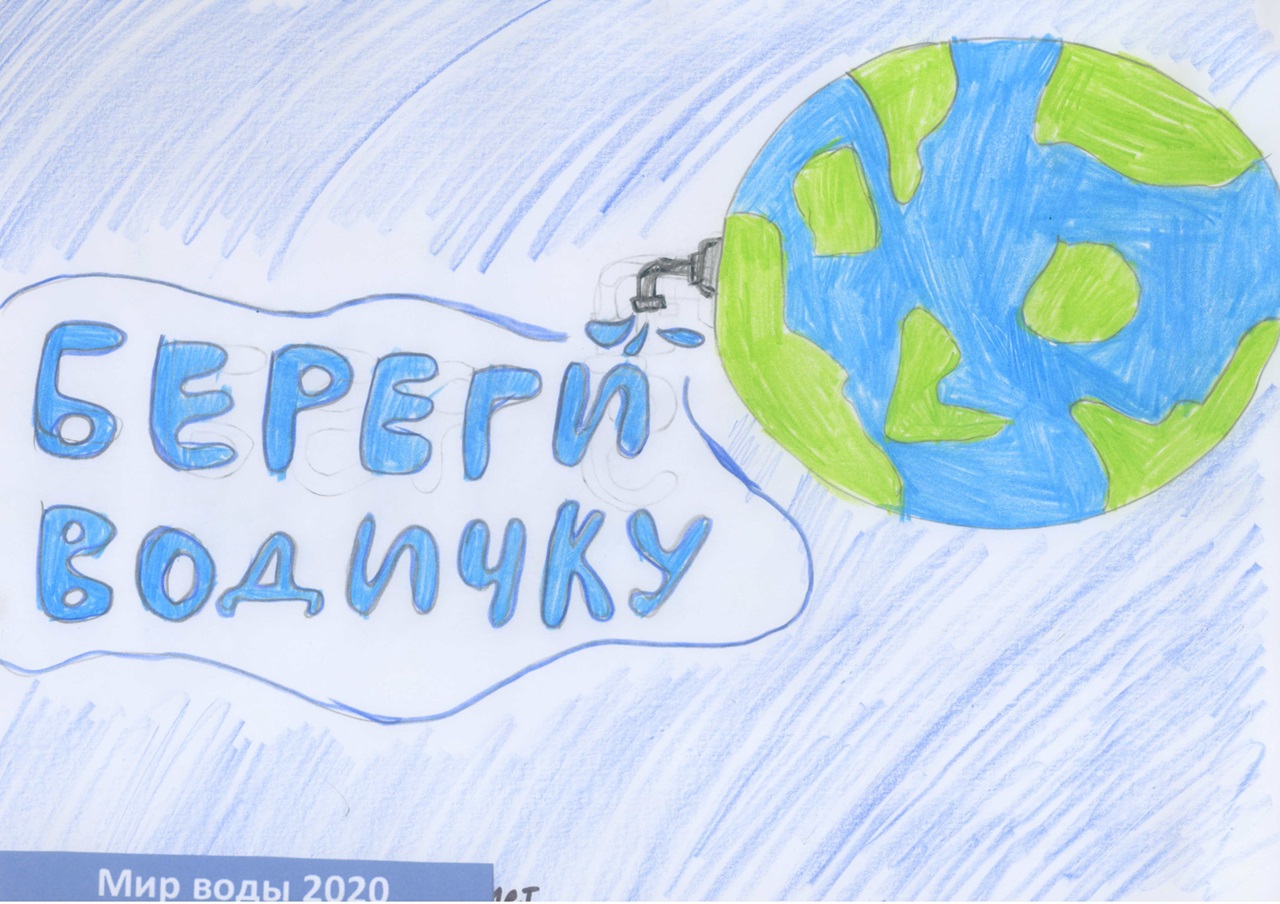 БЕРЕГИ
ВОДИЧКУ
Мир воды 2020